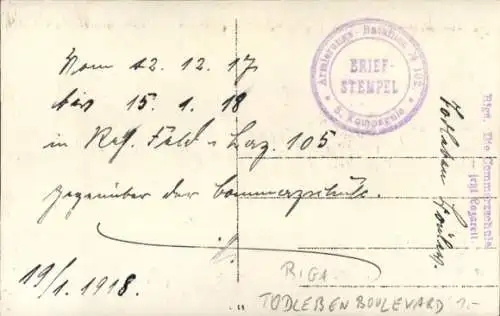 Vom 12.12.17
bis 15.1.18
in Res. Feld-Laz. 105
gegenüber der Commerzschule.
19/1.1918.
Armierungs-Bataillon № 102
BRIEF-
STEMPEL
* 3. Kompagnie *
Riga. Die Commerzschule
jetzt Lazarett.
RIGA
TODLEBENBOULEVARD 1.-